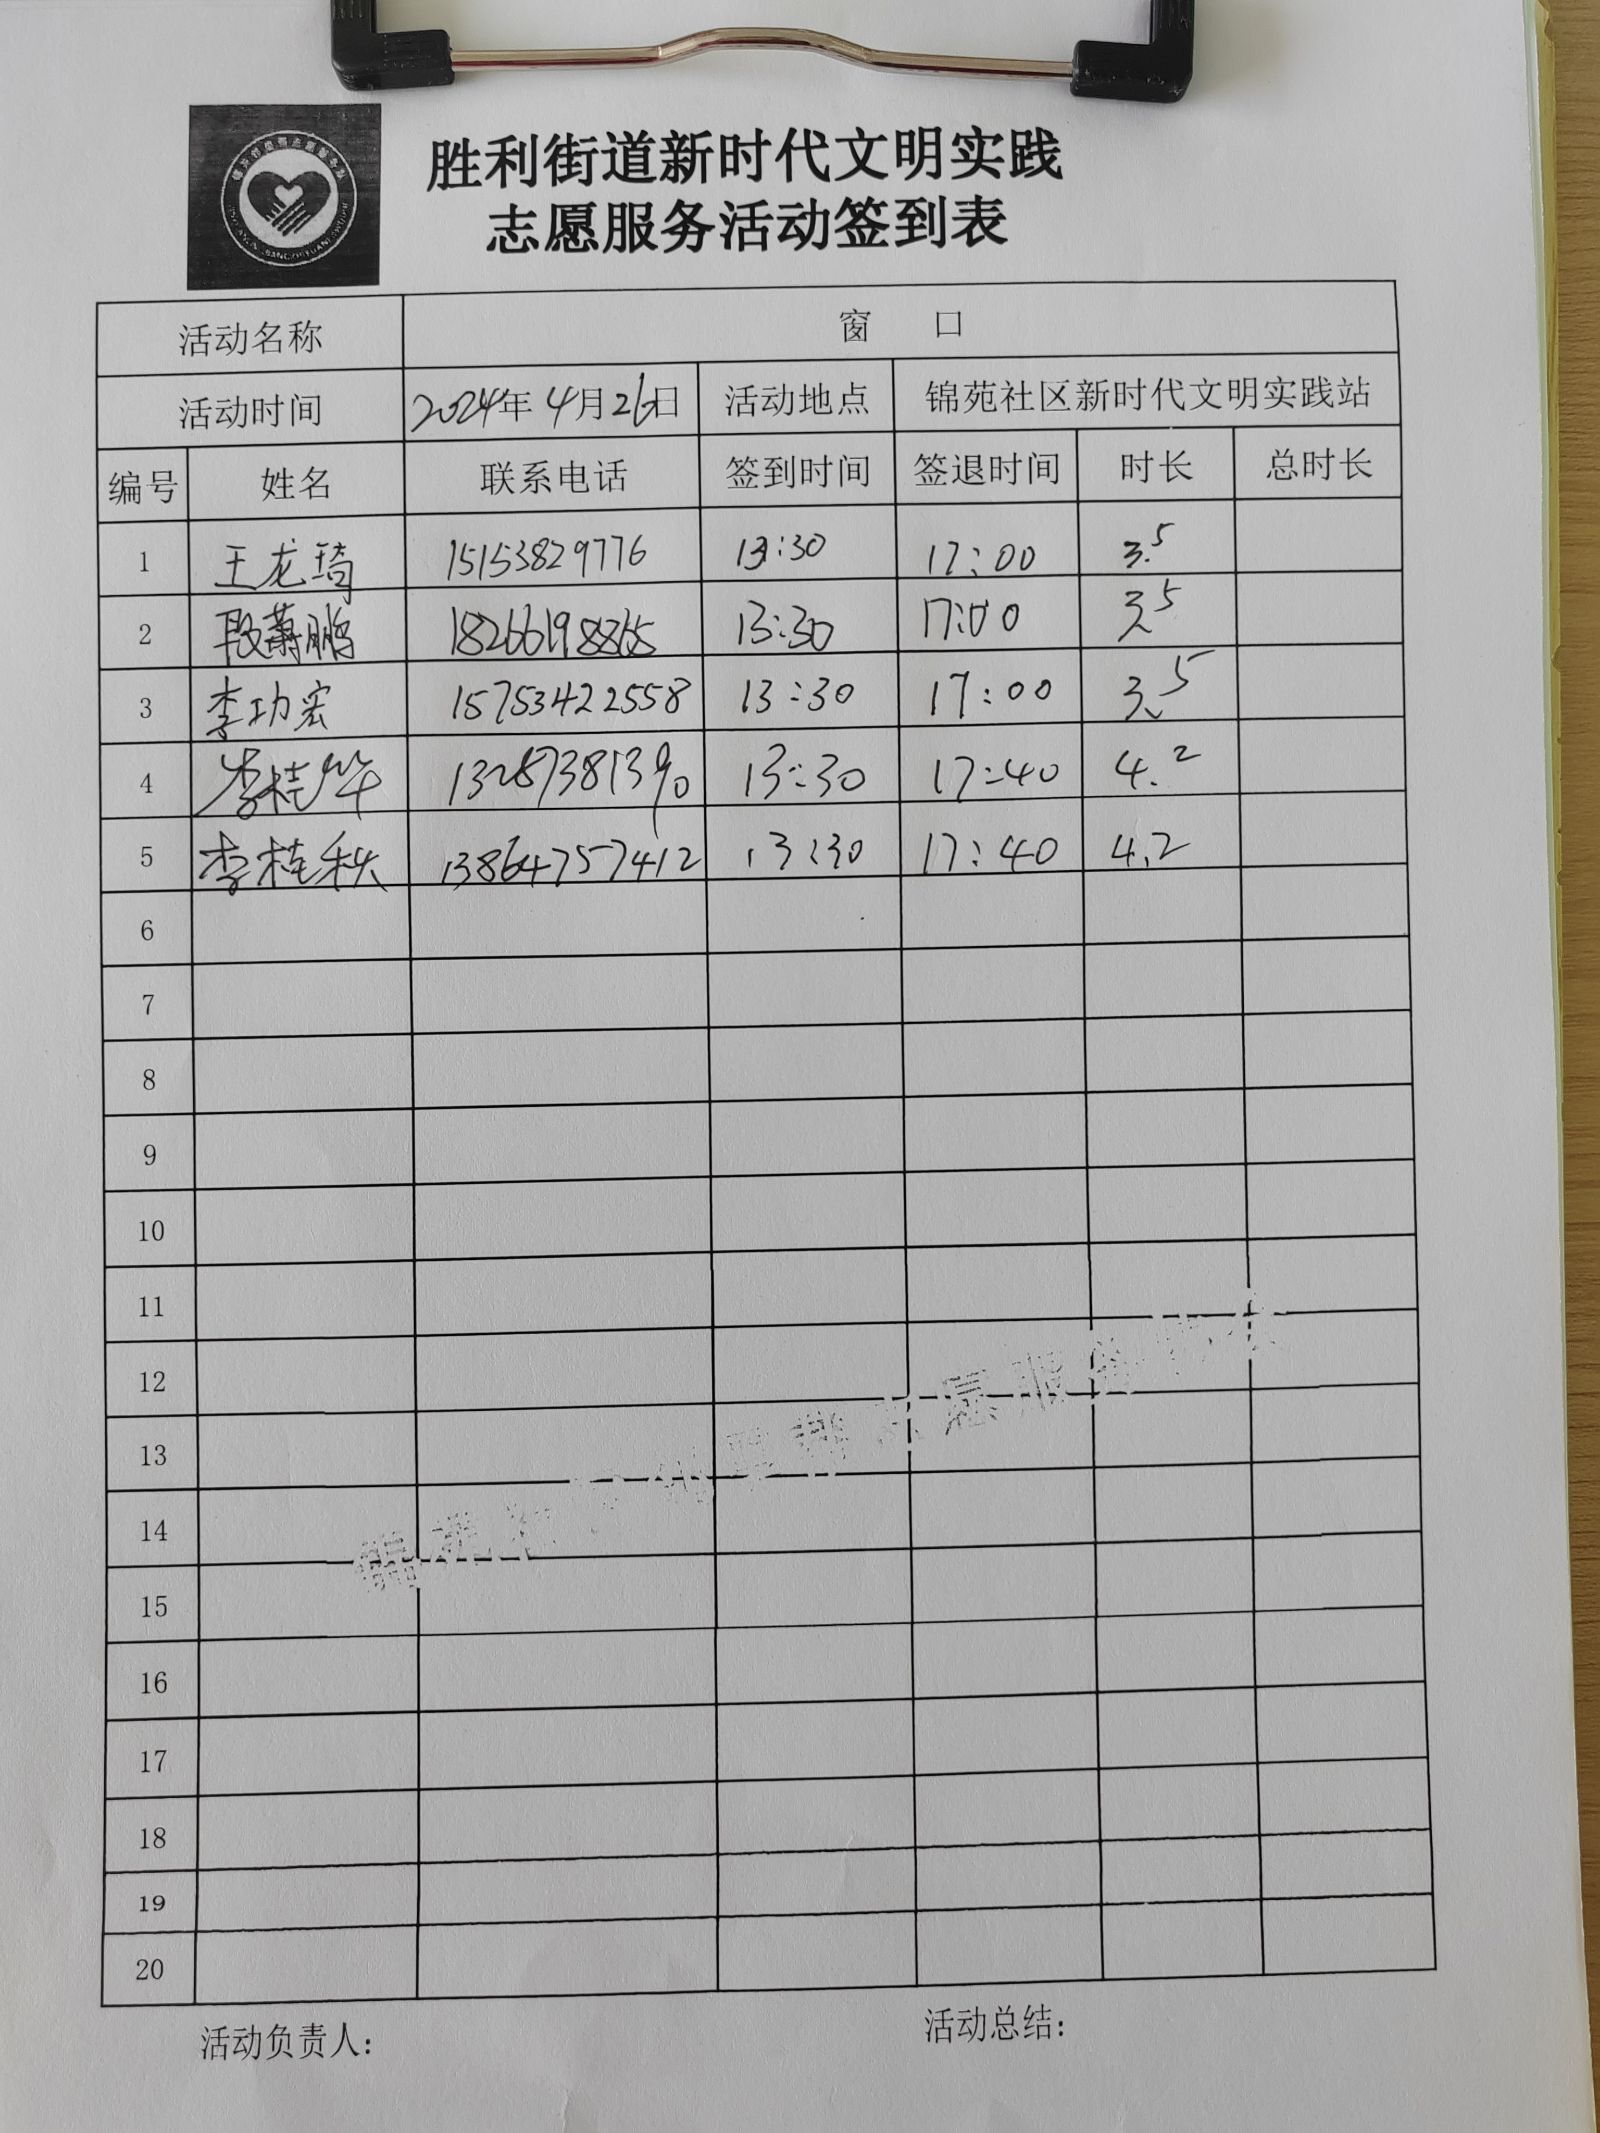 胜利街道新时代文明实践
志愿服务活动签到表
活动名称 窗 口
活动时间 2024年 4月26日 活动地点 锦苑社区新时代文明实践站
编号 姓名 联系电话 签到时间 签退时间 时长 总时长
1 王龙琦 15153829776 13:30 17:00 3.5
2 段萧鹏 13:30 17:00 3.5
3 李功宏 15753422558 13:30 17:00 3.5
4 李桂华 13287381390 13:30 17:40 4.2
5 李桂秋 13864757412 13:30 17:40 4.2
6
7
8
9
10
11
12
13
14
15
16
17
18
19
20
活动负责人: 活动总结: